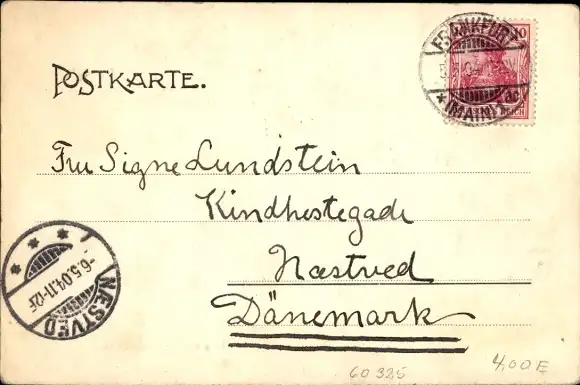 POSTKARTE.
FRANKFURT
(MAIN)
10
Fru Signe Lundstein
Kindhestegade
Næstved
Dänemark
NÆSTVED
6.5.04.11-12F
60325
4,00E